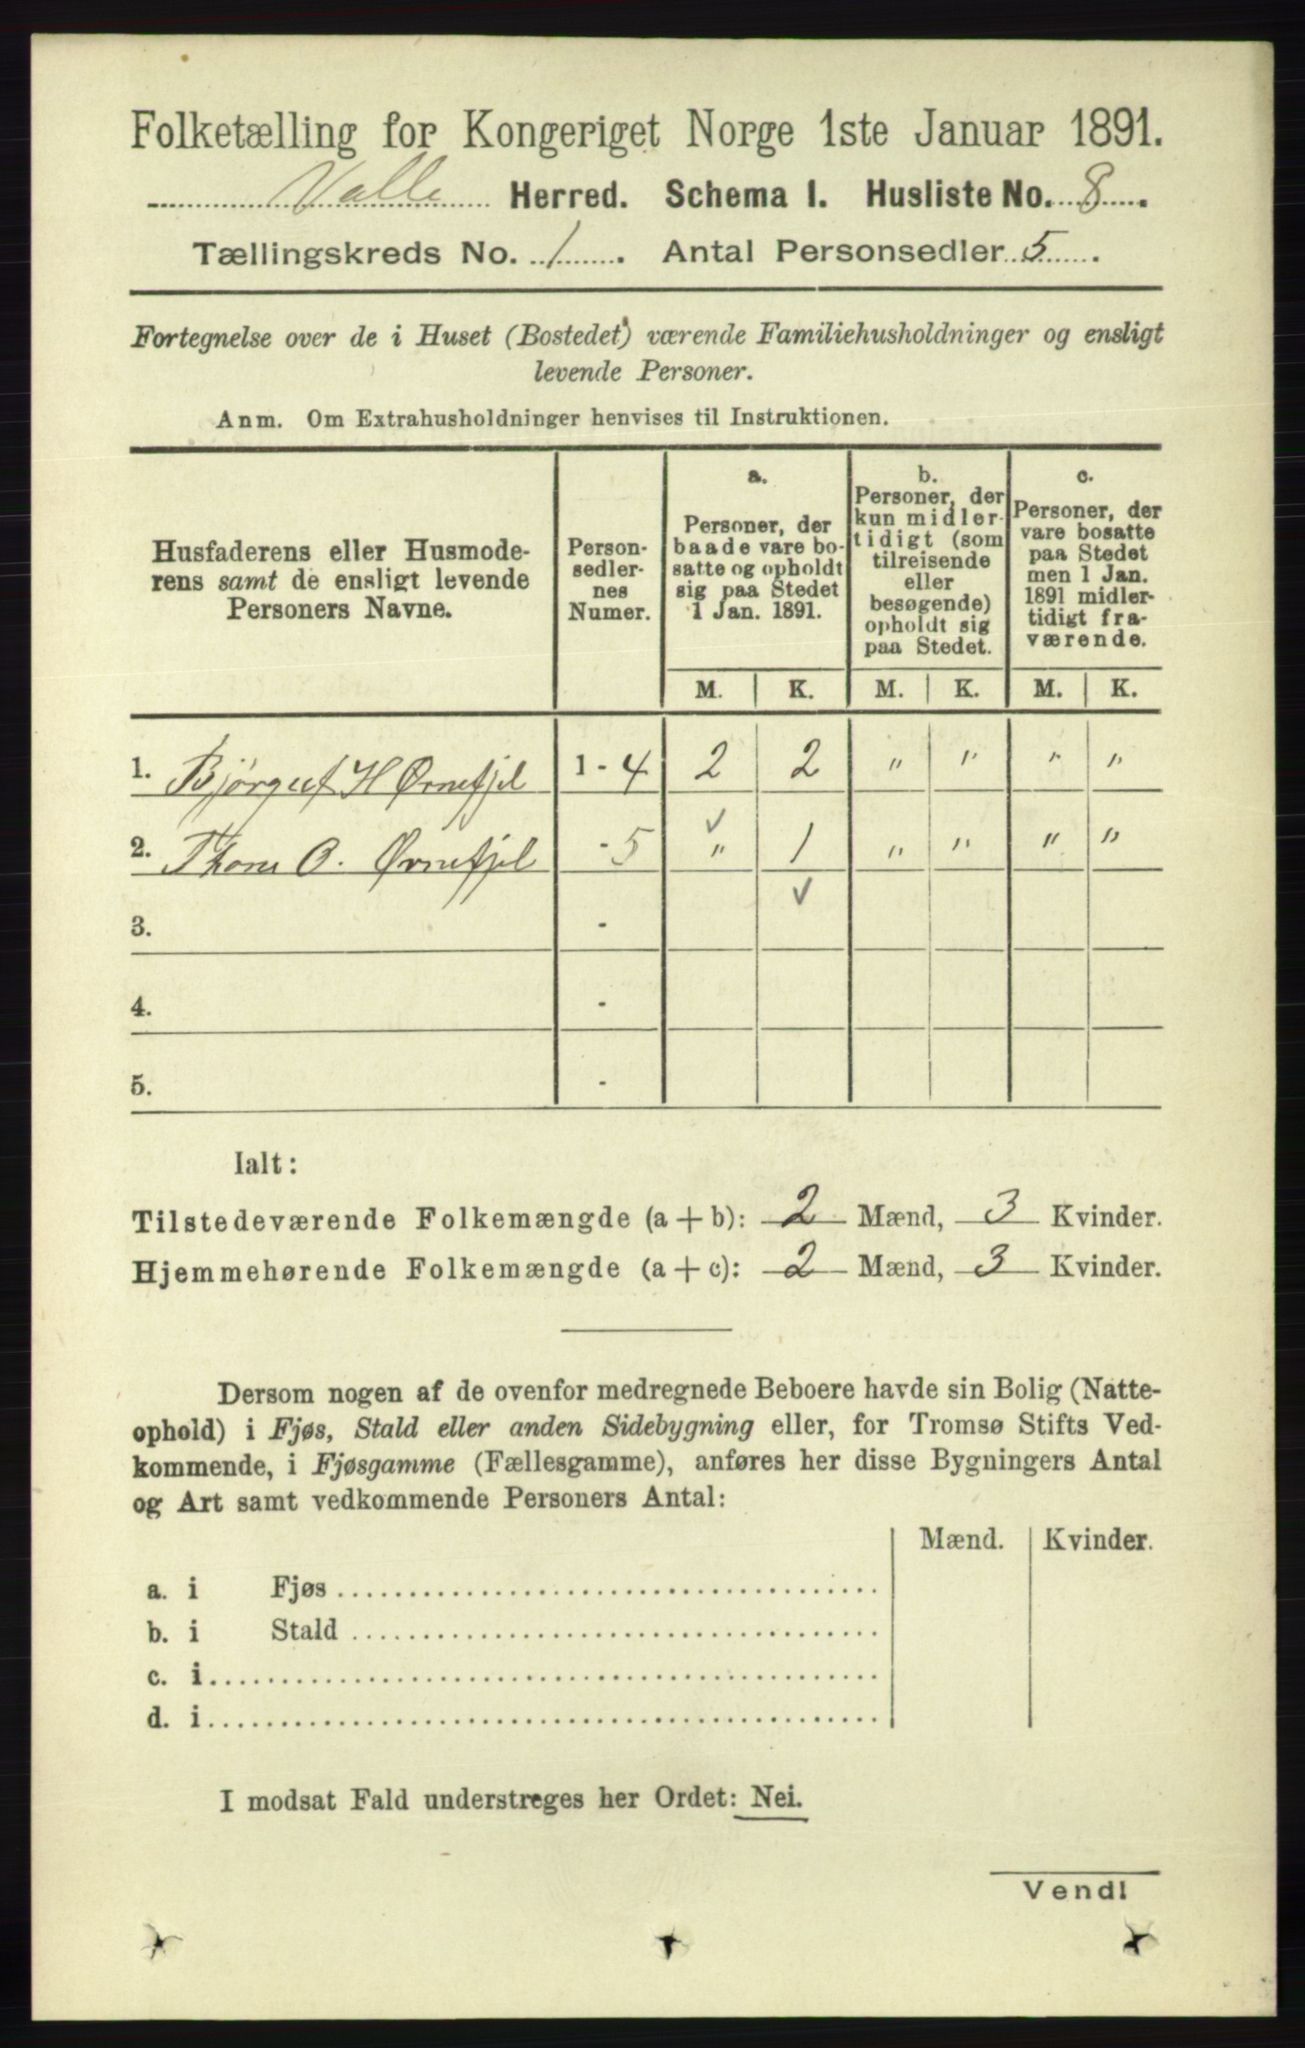 Folketælling for Kongeriget Norge 1ste Januar 1891.
Valle Herred. Schema I. Husliste No. 8.
Tællingskreds No. 1. Antal Personsedler 5.
Fortegnelse over de i Huset (Bostedet) værende Familiehusholdninger og ensligt
levende Personer.
Anm. Om Extrahusholdninger henvises til Instruktionen.
Husfaderens eller Husmode-
rens samt de ensligt levende
Personers Navne.
Person-
sedler-
nes
Numer.
a.
Personer, der
baade vare bo-
satte og opholdt
sig paa Stedet
1 Jan. 1891.
b.
Personer, der
kun midler-
tidigt (som
tilreisende
eller
besøgende)
opholdt sig
paa Stedet.
c.
Personer, der
vare bosatte
paa Stedet
men 1 Jan.
1891 midler-
tidigt fra-
værende.
M. K. M. K. M. K.
1. Bjørguf H Ørnefjel 1 - 4 2 2 " " " "
2. Thore O. Ørnefjel - 5 " 1 " " " "
3. -
4. -
5. -
Ialt:
Tilstedeværende Folkemængde (a + b): 2 Mænd, 3 Kvinder.
Hjemmehørende Folkemængde (a + c): 2 Mænd, 3 Kvinder.
Dersom nogen af de ovenfor medregnede Beboere havde sin Bolig (Natte-
ophold) i Fjøs, Stald eller anden Sidebygning eller, for Tromsø Stifts Ved-
kommende, i Fjøsgamme (Fællesgamme), anføres her disse Bygningers Antal
og Art samt vedkommende Personers Antal:
Mænd. Kvinder.
a. i Fjøs
b. i Stald
c. i
d. i
I modsat Fald understreges her Ordet: Nei.
Vend!